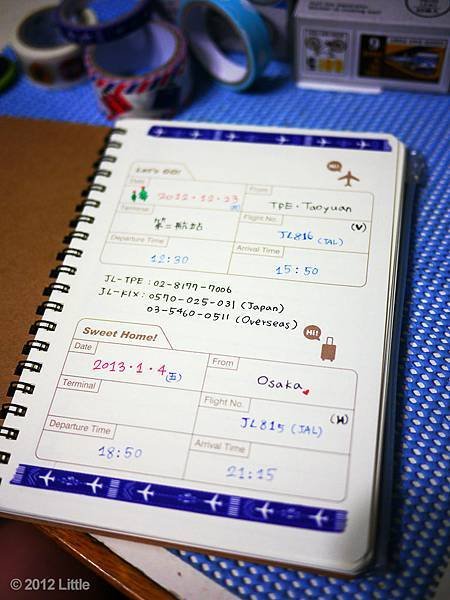 Hi!
Let's GO!
Date
2012.12.23
From
TPE.Taoyuan
Terminal
第二航站
Flight No.
(V)
JL816 (JAL)
Departure Time
12:30
Arrival Time
15:50
JL-TPE : 02-8177-7006
JL-KIX : 0570-025-031 (Japan)
03-5460-0511 (Overseas)
Hi!
Sweet Home!
Date
2013.1.4
(五)
From
Osaka
Terminal
Flight No.
(H)
JL815 (JAL)
Departure Time
18:50
Arrival Time
21:15
© 2012 Little